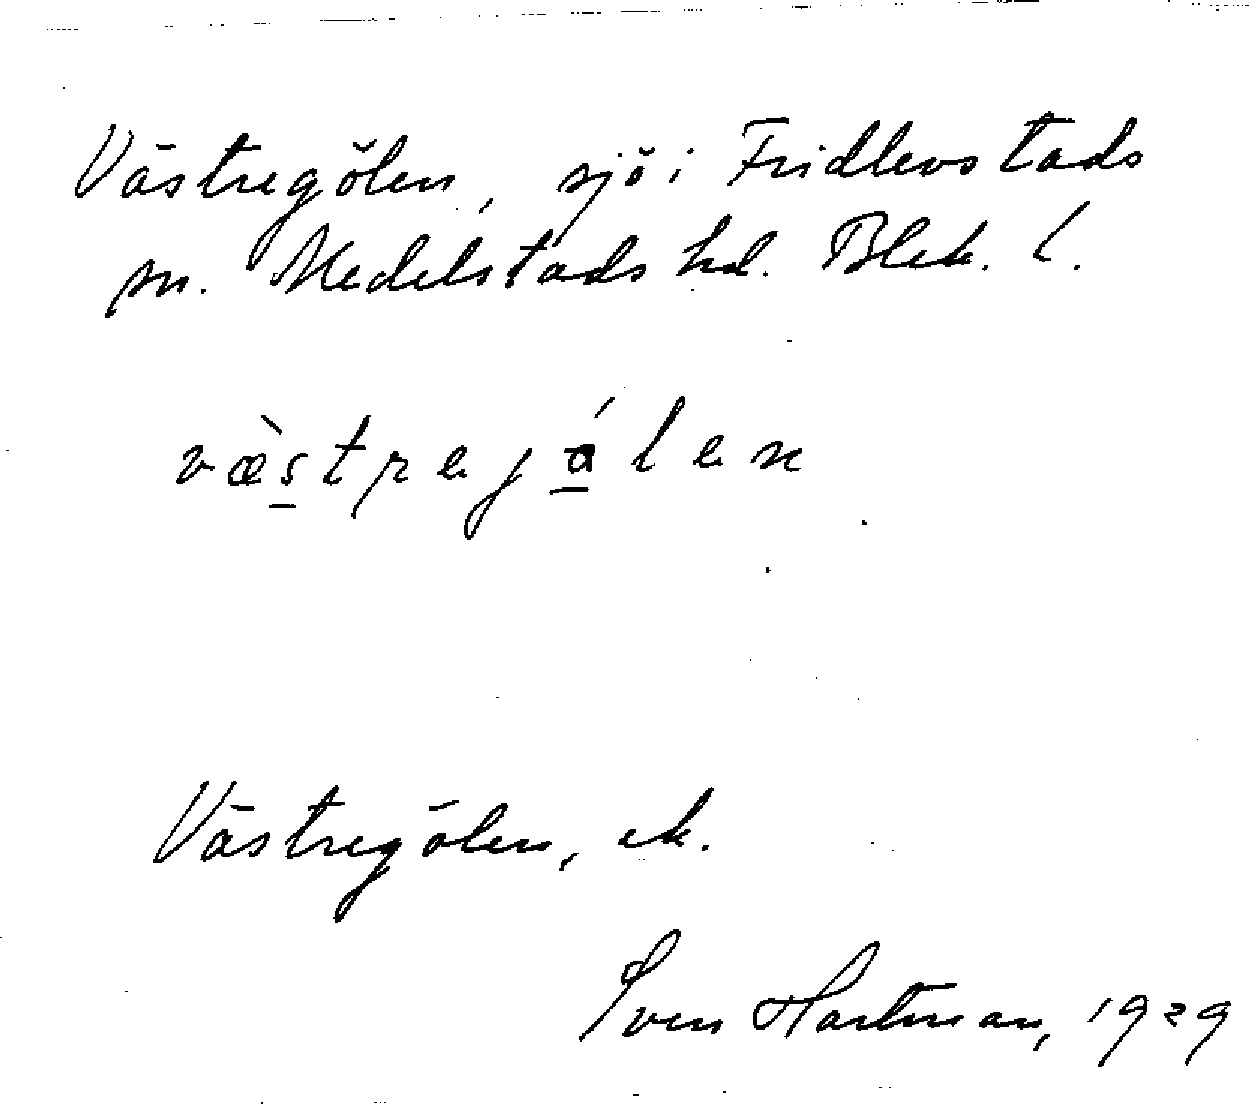 Västregölen, sjö i Fridlevstads
sn. Medelstads hd. Blek. l.
væ̀s̲trejó̲len
Västregölen, ek.
Sven Hartman, 1929